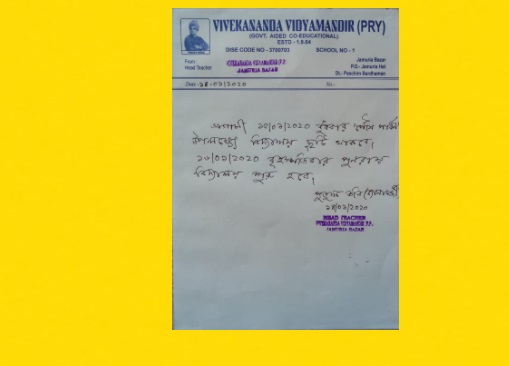 VIVEKANANDA VIDYAMANDIR (PRY)
(GOVT. AIDED CO-EDUCATIONAL)
ESTD - 1.9.64
DISE CODE NO - 3700703 SCHOOL NO - 1
From
Head Teacher
VIVEKANANDA VIDYAMANDIR F.P.
JAMURIA BAZAR
Jamuria Bazar
P.O.- Jamuria Hat
Dt.- Paschim Bardhaman
Date ১৪-০১/২০২০ To.-
আগামী ১৫/০১/২০২০ বুধবার পৌষ পার্বন
উপলক্ষ্যে বিদ্যালয় ছুটি থাকবে।
১৬/০১/২০২০ বৃহস্পতিবার পুনরায়
বিদ্যালয় শুরু হবে।
১৪/০১/২০২০
HEAD TEACHER
VIVEKANANDA VIDYAMANDIR F.P.
JAMURIA BAZAR